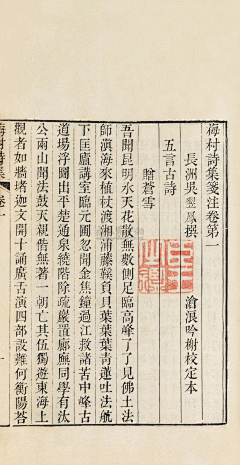 梅村詩集箋注卷第一
長洲吳翌鳳撰　滄浪吟榭校定本
五言古詩
贈蒼雪
吾聞昆明水天花散無數側足臨高峰了了見佛土法
師滇海來植杖渡湘浦藤鞵負貝葉葉葉青蓮吐法航
下匡廬講室臨玄圃忽聞金焦鐘過江救諸苦中峰古
道場浮圖出平楚通泉繞階除疏巖置廊廡同學有汰
公兩山聞法鼓天親偕無著一朝亡其伍獨遊東海上
觀者如牆堵迦文開十誦廣舌演四部設難何衡陽答
梅村詩集　卷一